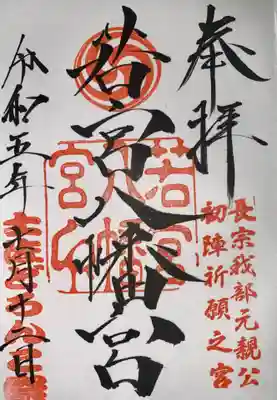 奉拝
長宗我部元親公
初陣祈願之宮
若宮八幡宮
若宮八幡宮
令和五年十月十二日